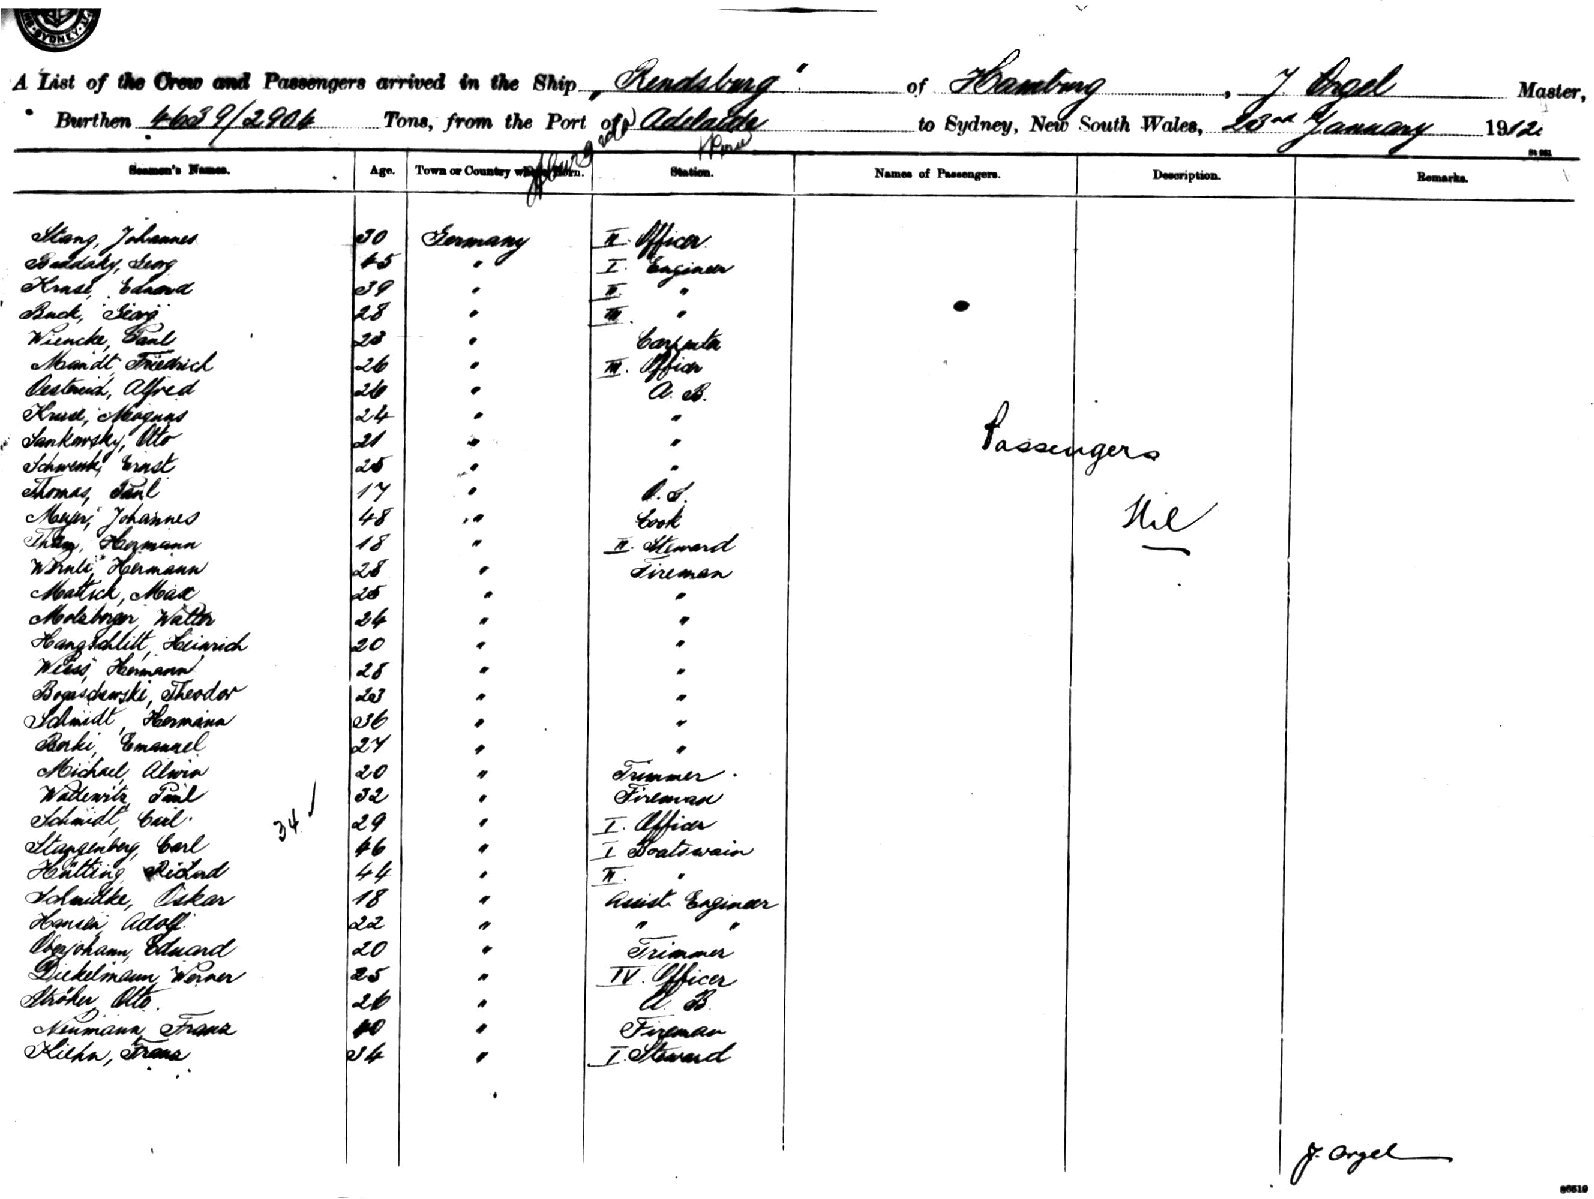 SYDNEY
A List of the Crew and Passengers arrived in the Ship „Rendsburg" of Hamburg, J Orgel Master,
Burthen 4639/2904 Tons, from the Port of Adelaide to Sydney, New South Wales, 23rd January 1912.
Seamen's Names. Age. Town or Country where Born. Station. Names of Passengers. Description. Remarks.
Stang, Johannes 30 Germany II. Officer
Georg 45 " I. Engineer
Kruse, Edmond 39 " II "
Buck, Georg 28 " III. "
Wiencke, Paul 23 " Carpenter
Mandt, Friedrich 26 " III. Officer
Oestreich, Alfred 26 " A. B.
Kruse, Magnus 24 " "
Sankowsky, Otto 21 " "
Schwenk, Ernst 25 " "
Passengers
Thomas, Paul 17 " O. S.
Meyer, Johannes 48 " Cook
Nil
Hermann 18 " II. Steward
Hermann 28 " Fireman
Mattick, Max 25 " "
Molzberger, Walter 24 " "
Hangschlitt, Heinrich 20 " "
Wiess, Hermann 28 " "
Theodor 23 " "
Schmidt, Hermann 36 " "
Berki, Emanuel 27 " "
Michael, Alwin 20 " Trimmer
Wallewitz, Paul 32 " Fireman
Schmidt, Carl 29 " I. Officer
34
Stangenberg, Carl 46 " I Boatswain
Hütting, Richard 44 " II. "
Schmidke, Oskar 18 " Assist. Engineer
Hansen, Adolf 22 " " "
Oberjohann, Eduard 20 " Trimmer
Diekelmann, Werner 25 " IV. Officer
Ströher, Otto 26 " A. B.
Neumann, Franz 40 " Fireman
Kiehn, Franz 34 " I. Steward
J. Orgel